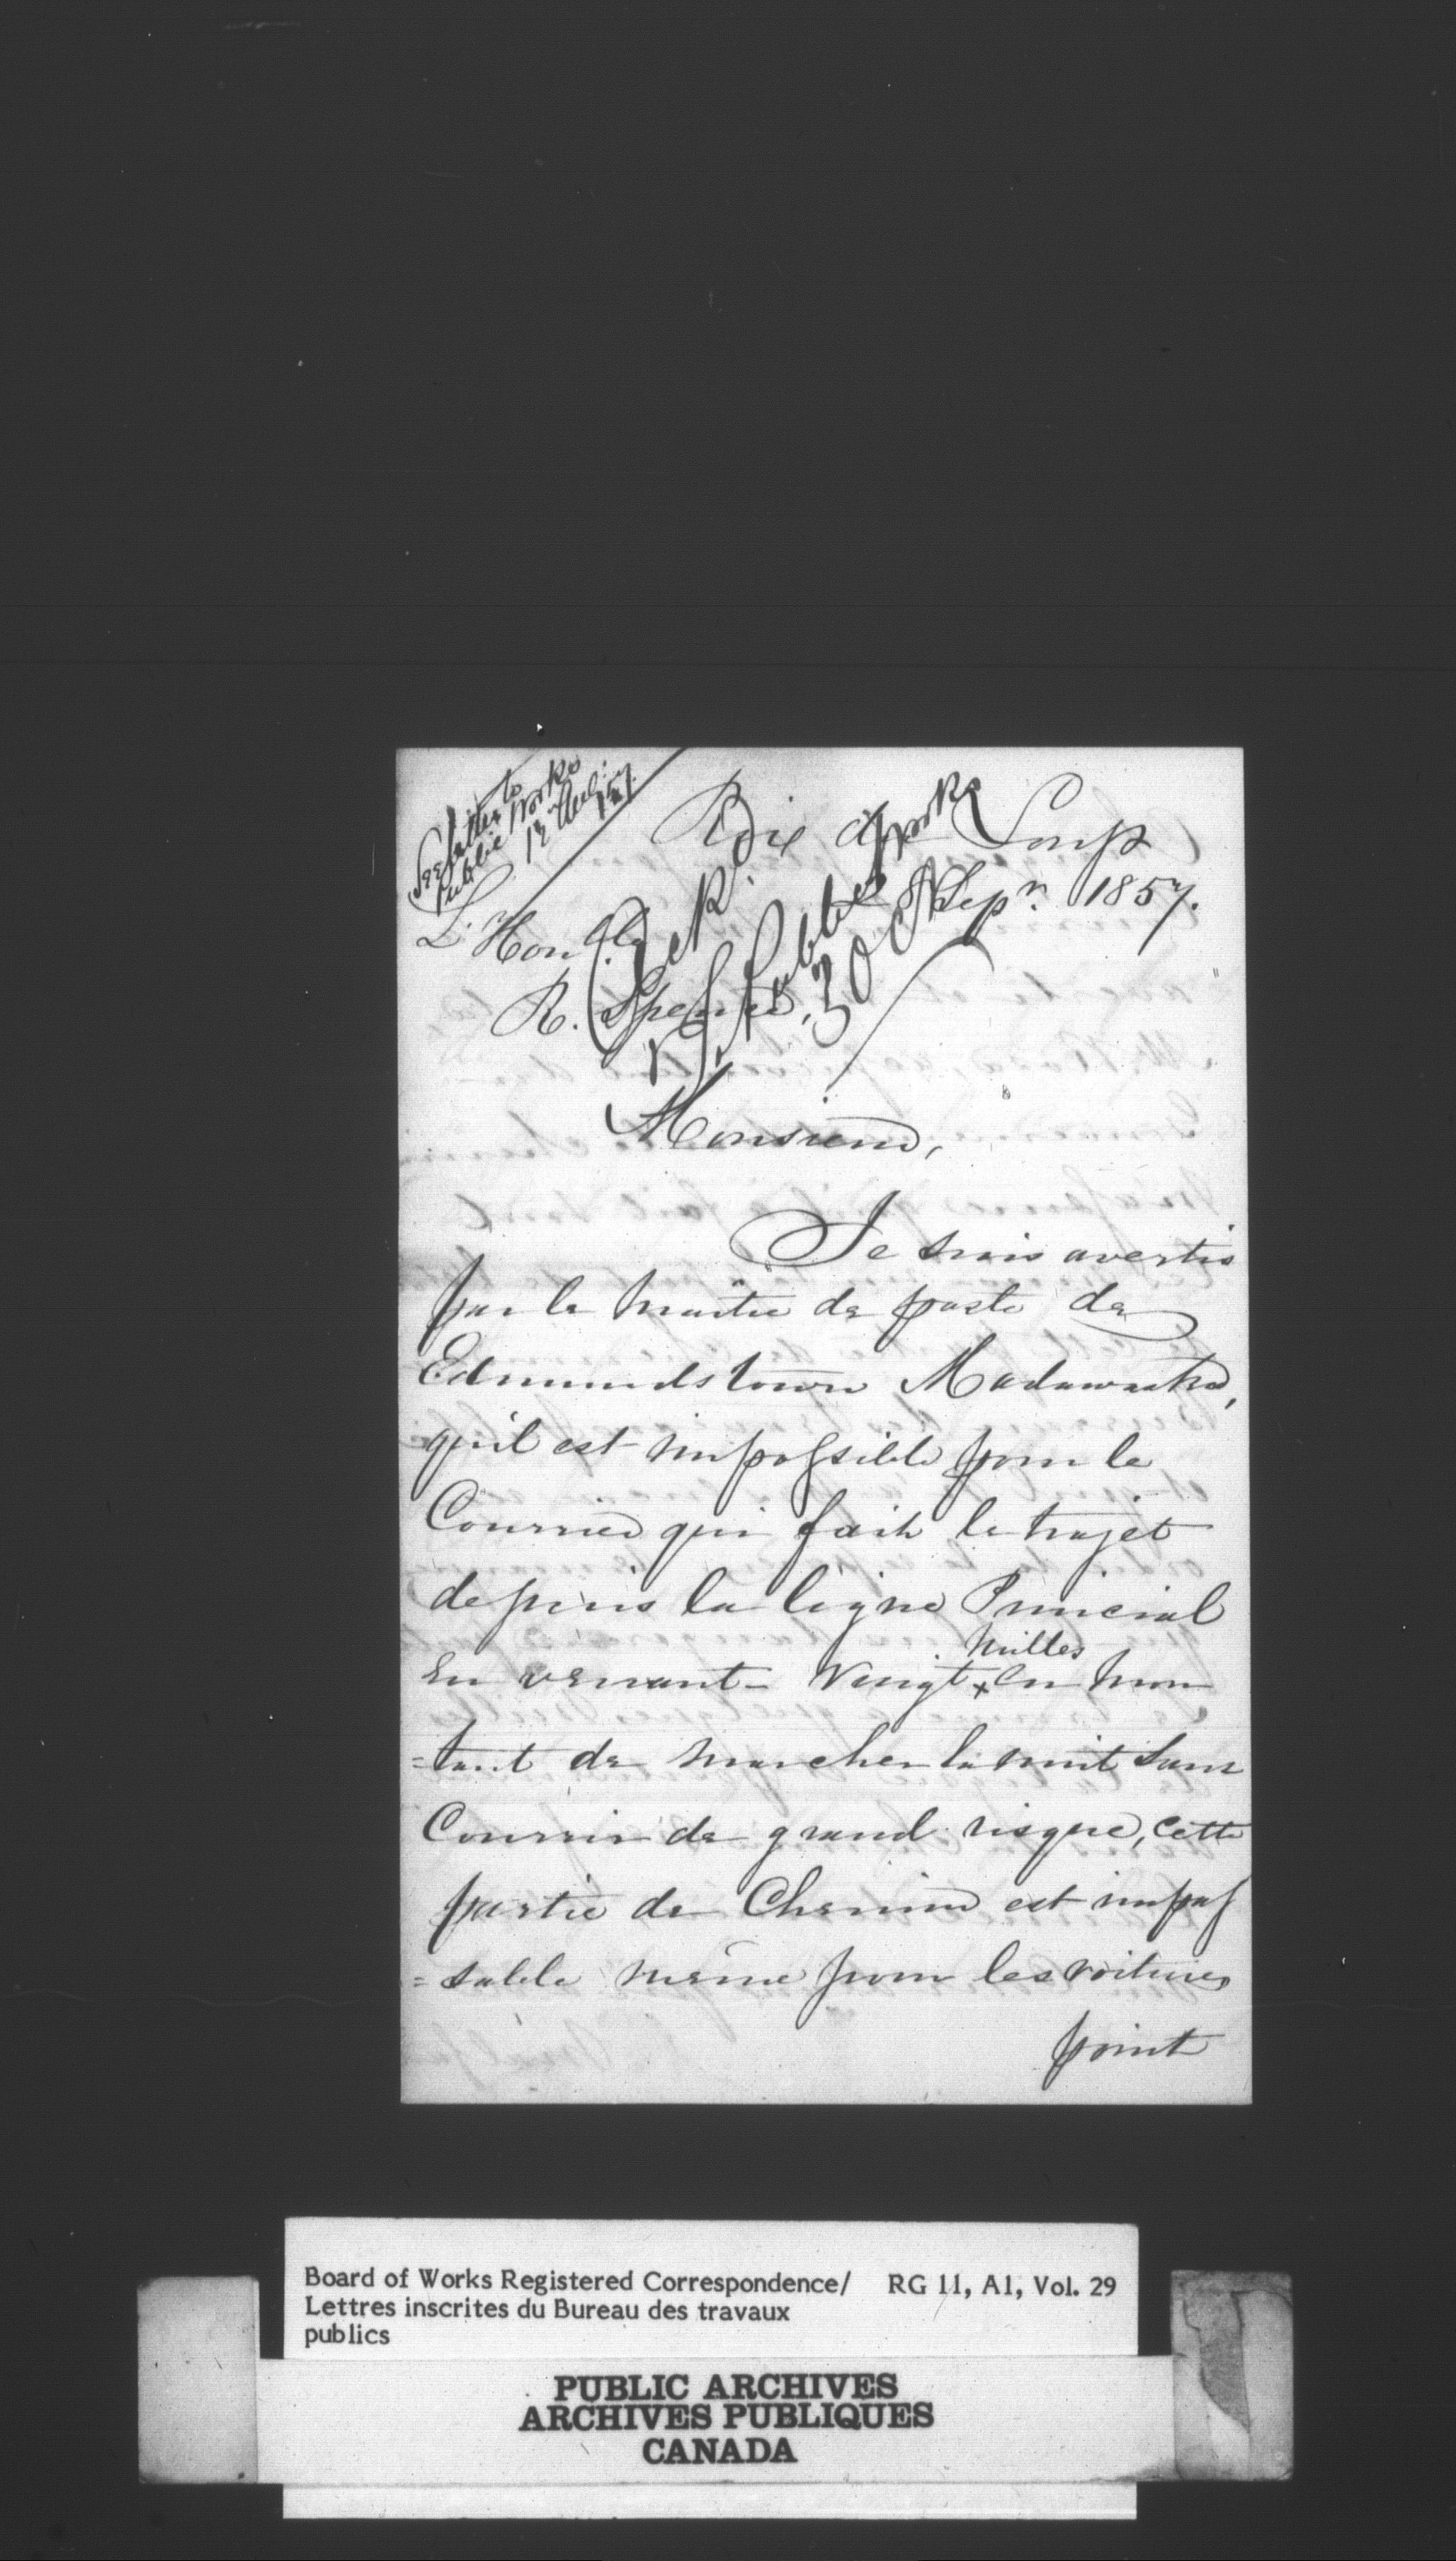 See letter to
Public Works
12 
/57.
Riv du Loup
Sepr. 1857.
L'Honble
R. Spence,
Public Works
30
Monsieur,
Je suis avertis
par le maitre de poste de
Edmundstown Madawaska,
qu'il est impossible pour le
Courrier qui fait le trajet
depuis la ligne Princial
en venant Vingt x en mon
milles
=tant de marcher la nuit sans
Courrir de grand risque, cette
partie de Chemin est impas
=sable même pour les voitures
point
Board of Works Registered Correspondence/ RG 11, A1, Vol. 29
Lettres inscrites du Bureau des travaux
publics
PUBLIC ARCHIVES
ARCHIVES PUBLIQUES
CANADA